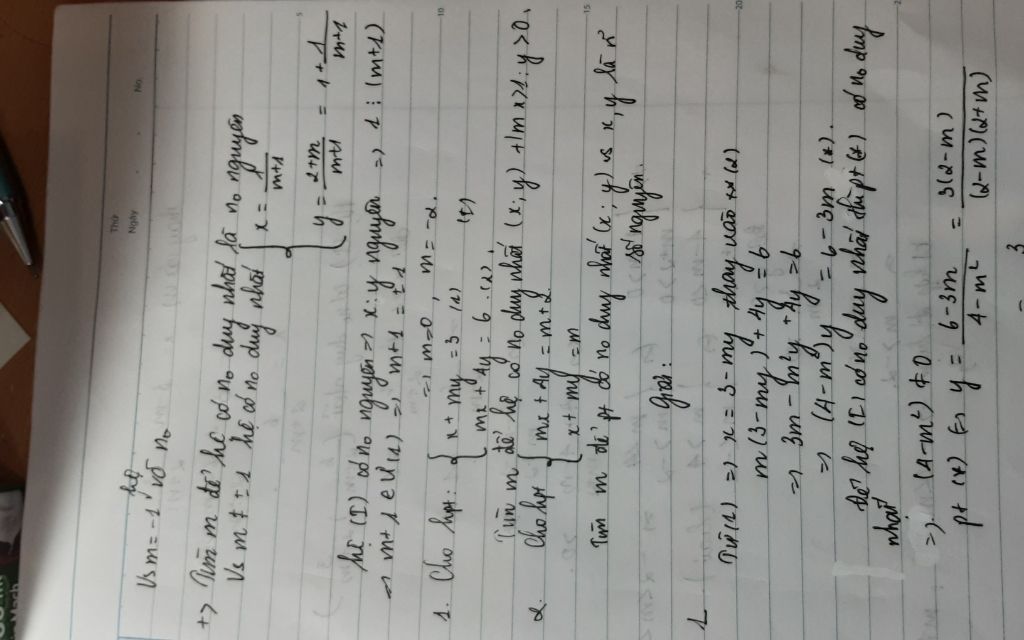 Thứ
Ngày No.
Vs m = -1 hệ vô n₀
+> Tìm m để hệ có n₀ duy nhất là n₀ nguyên
Vs m ≠ ± 1 hệ có n₀ duy nhất { x = 1/(m+1)
y = (2+m)/(m+1) = 1 + 1/(m+1)
hệ (I) có n₀ nguyên => x; y nguyên => 1 ⋮ (m+1)
=> m + 1 ∈ Ư(1) => m + 1 = ± 1
=> m = 0, m = -2.
1. Cho hpt: { x + my = 3 (1) (I)
mx + 4y = 6 (2)
Tìm m để hệ có n₀ duy nhất (x; y) t/m x > 1; y > 0.
2. Cho hpt { mx + 4y = m + 2
x + my = m
Tìm m để pt có n₀ duy nhất (x; y) vs x, y là
số nguyên.
Giải:
1
Từ (1) => x = 3 - my thay vào (2)
m(3 - my) + 4y = 6
=> 3m - m²y + 4y = 6
=> (4 - m²)y = 6 - 3m (*).
Để hệ (I) có n₀ duy nhất thì pt (*) có n₀ duy
nhất
=> (4 - m²) ≠ 0
pt (*) <=> y = (6 - 3m)/(4 - m²) = 3(2 - m)/((2 - m)(2 + m))
= 3
5
10
15
20